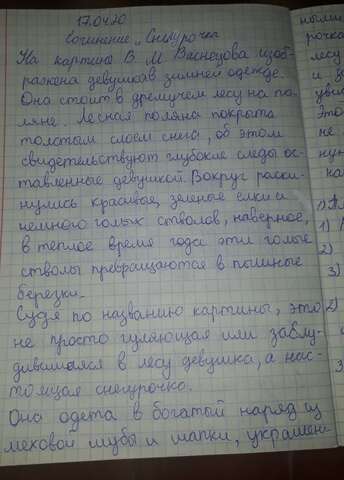 17.0420
Сочинение „Снегурочка
На картине В. М Васнецова изоб-
ражена девушка в зимней одежде.
Она стоит в дремучем лесу на по-
ляне. Лесная поляна покрыта
толстым слоем снега, об этом
свидетельствуют глубокие следы ос-
тавленные девушкой. Вокруг раски-
нулись красивые, зеленые ёлки и
немного голых стволов, наверное,
в теплое время года эти голые
стволы превращаются в пышные
берёзки.
Судя по названию картины, это
не просто гуляющая или заблу-
дившаяся в лесу девушка, а нас-
тоящая снегурочка.
Она одета в богатый наряд из
меховой шубы и шапки, украшен-
ными
рочка
лесу
и за
уви
Это
не
нун
на
1)
2)
3)
2)
3)